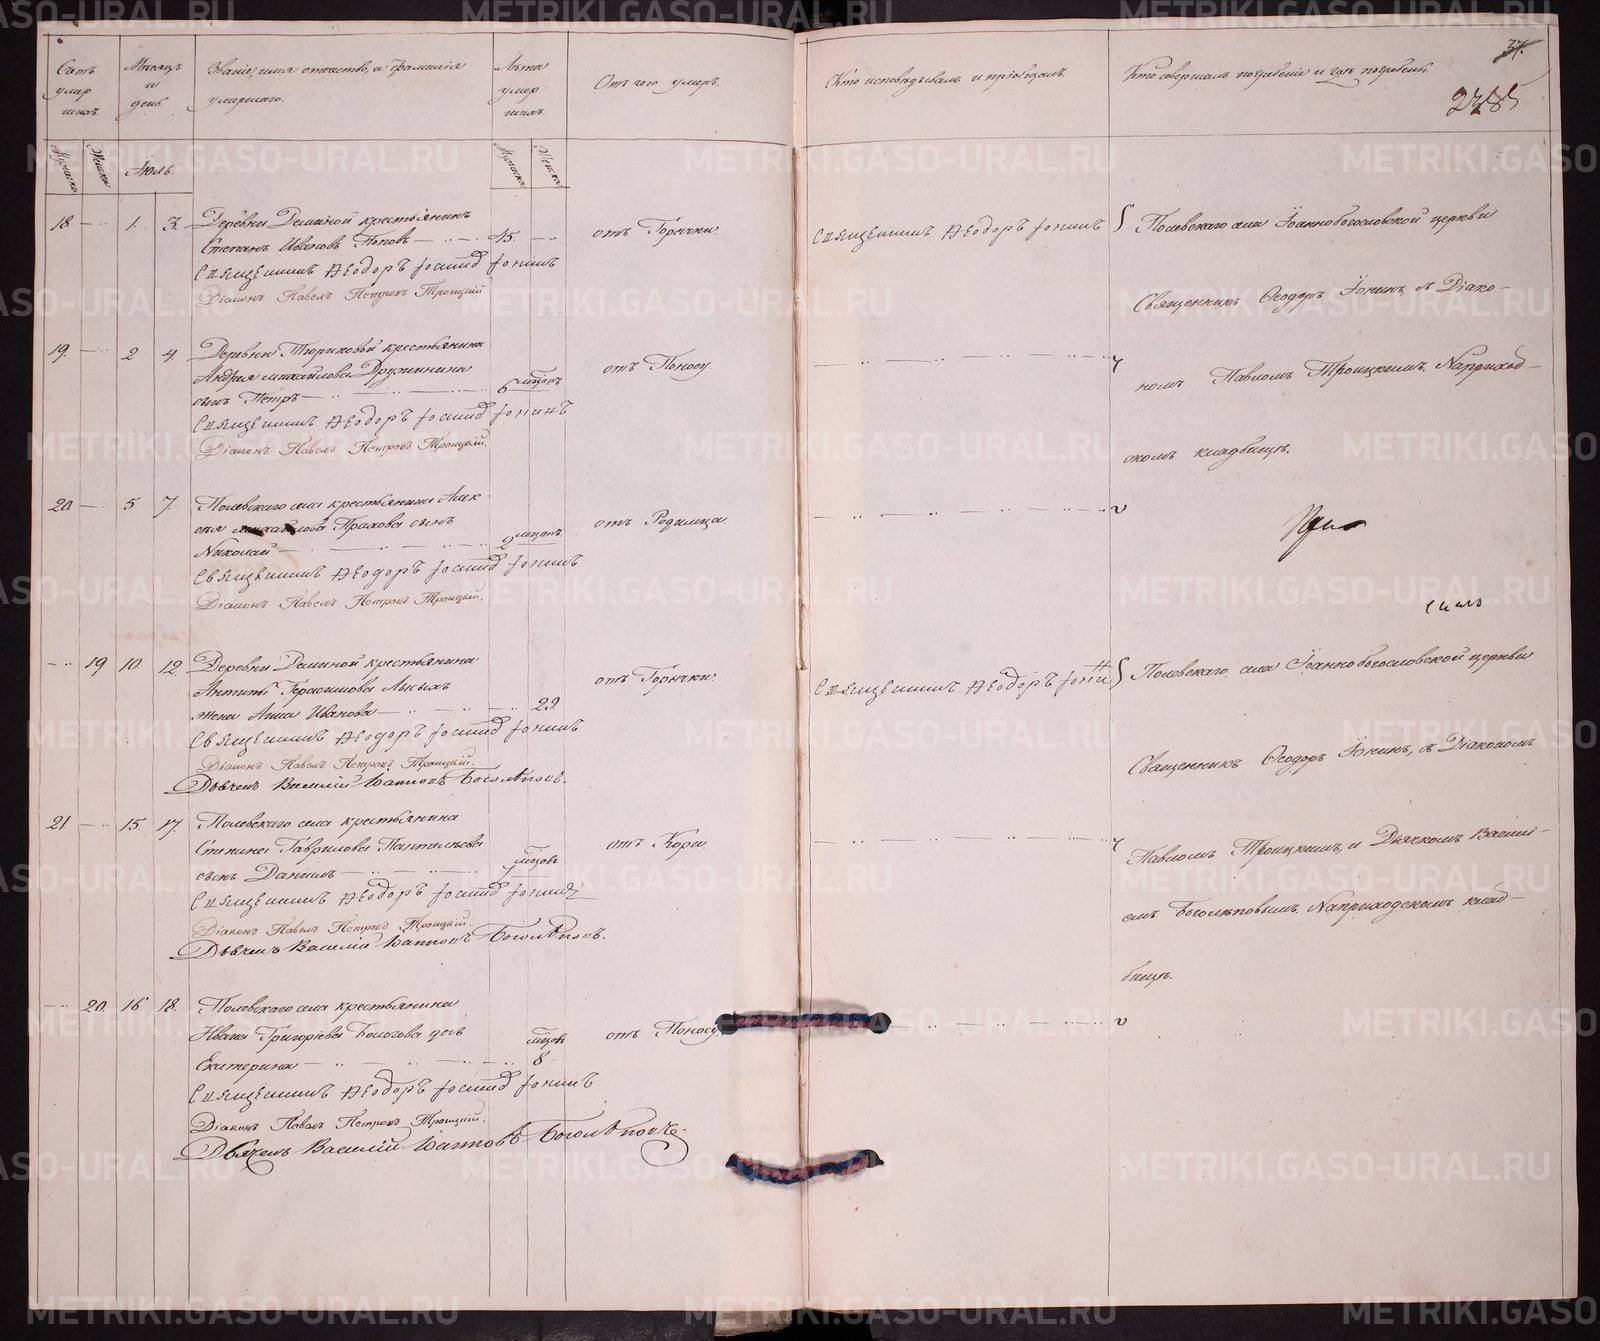 37.
2785
Счетъ умершихъ.
Мѣсяцъ и день
Званіе, имя отчество, и фамилія умершаго.
Лѣта умершихъ.
Отъ чего умеръ.
Кто исповѣдывалъ и пріобщалъ.
Кто совершалъ погребеніе и гдѣ погребены.
Мужеска
Женска
Іюль.
Мужеска
Женска
18 1. 3. Деревни Деминой крестьянинъ
Степанъ Ивановъ Поповъ 45. отъ Горячки. Священникъ Ѳеодоръ Іонинъ
Священникъ Ѳеодоръ Іоанновъ Іонинъ
Діаконъ Павелъ Петровъ Троицкій
Полевскаго села Іоаннобогословской церкви
Священникъ Ѳеодоръ Іонинъ, съ Діако-
номъ Павломъ Троицкимъ, На приход-
скомъ кладбищѣ.
19. 2 4. Деревни крестьянина
Андрея Михайлова Дружинина
сынъ Петръ 6 мѣсцовъ отъ Поносу
Священникъ Ѳеодоръ Іоанновъ Іонинъ
Діаконъ Павелъ Петровъ Троицкій.
20 5 7. Полевскаго села крестьянина Алек-
сѣя Михайлова Прахова сынъ
Николай 2 мѣсцовъ. отъ Родимца
Священникъ Ѳеодоръ Іоанновъ Іонинъ
Діаконъ Павелъ Петровъ Троицкій.
19 10. 12. Деревни Деминой крестьянина
Антипы Герасимова
жена Анна Иванова 29. отъ Горячки. Священникъ Ѳеодоръ Іонинъ
Священникъ Ѳеодоръ Іоанновъ Іонинъ
Діаконъ Павелъ Петровъ Троицкій.
Дьячекъ Василій Боголѣповъ.
Полевскаго села Іоаннобогословской церкви
Священникъ Ѳеодоръ Іонинъ, съ Діакономъ
Павломъ Троицкимъ, и Дьячкомъ Васили-
емъ Боголѣповымъ. На приходскомъ клад-
бищѣ.
21 15. 17. Полевскаго села крестьянина
Степана Гаврилова Пантелѣева
сынъ Даніилъ 7 мѣсцовъ отъ Кори.
Священникъ Ѳеодоръ Іоанновъ Іонинъ
Діаконъ Павелъ Петровъ Троицкій.
Дьячекъ Василій Боголѣповъ.
20. 16. 18. Полевскаго села крестьянина
Ивана Григоріева дочь
Екатерина 8 мѣсцовъ отъ Поносу.
Священникъ Ѳеодоръ Іоанновъ Іонинъ
Діаконъ Павелъ Петровъ Троицкій.
Дьячекъ Василій Боголѣповъ.
METRIKI.GASO-URAL.RU